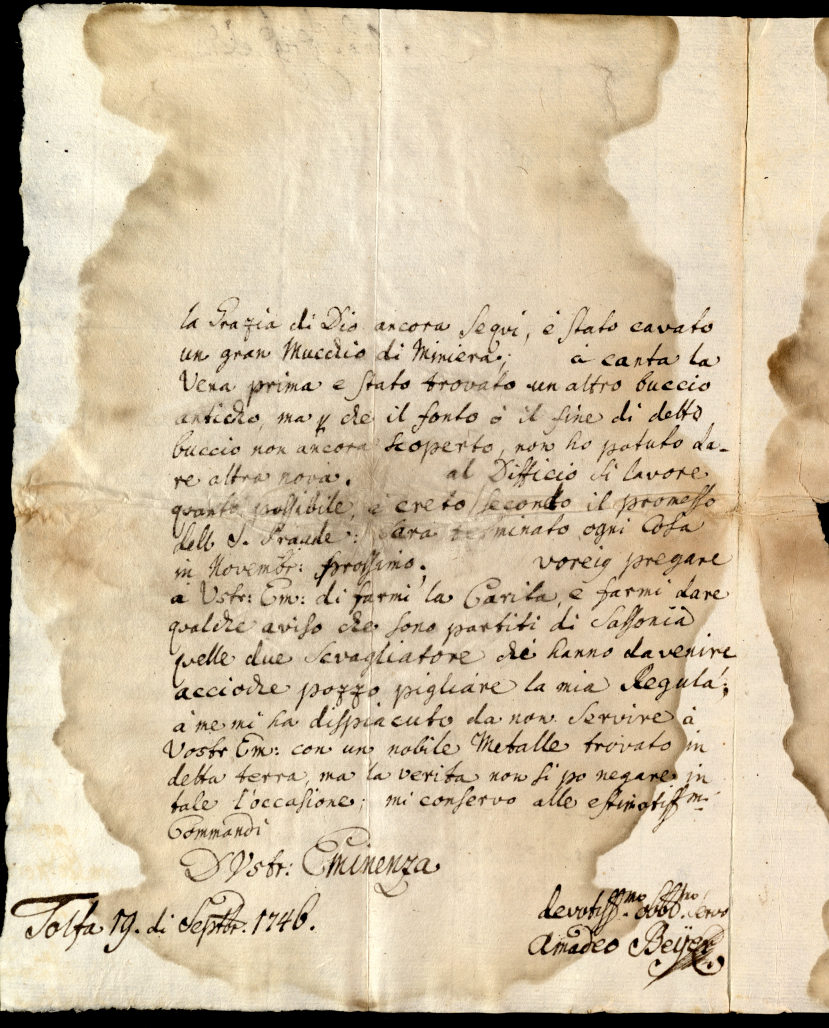 la Grazia di Dio ancora segui, è stato cavato
un gran Mucchio di Miniera; à canta la
Vena prima e stato trovato un altro buccio
anticho, ma che il fonto ò il fine di detto
buccio non ancora scoperto, non ho potuto da-
re altra nova. al Difficio di lavore
quanto possibile, è creto secondo il promesso
dell S. : sara terminato ogni Cosa
in Novembr: prossimo. voreig pregare
a Vstr: Em: di farmi la Carita, e farmi dare
qualche aviso che sono partiti di Sassonia
quelle due Sevagliatore che hanno da venire
accioche pozzo pigliare la mia Regula;
à me mi ha dispiacuto da non servire à
Vostr Em: con un nobile Metalle trovato in
detta terra, ma la verita non si po negare in
tale l'occasione; mi conservo alle estimatissmi
Commandi
D Vstr: Eminenza
Tolfa 19. di Septbr. 1746.
devotissmo. obbdmo. servo
Amadeo Beÿer